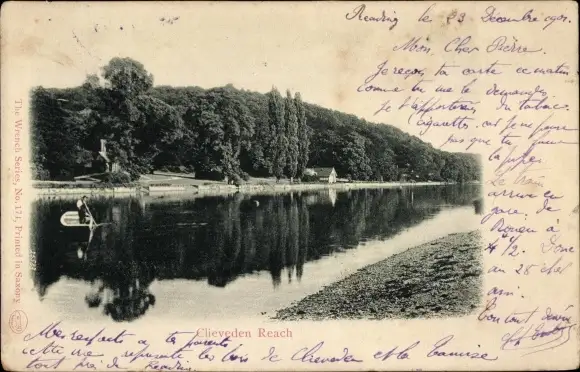 Reading le 23 Décembre 1901.
Mon Cher Pierre.
Je reçois ta carte ce matin
comme tu me le demandes
je t'apporterai du tabac
cigarettes. car je ne pense
pas que tu
Le train
arrive en
gare de
Rouen à
4 h 1/2. Donc
au 28 cher
ami.
Bon tout
The Wrench Series, No. 171, Printed in Saxony
Clieveden Reach
Mes respects à tes parents
cette vue représente les bois de Clieveden et la Tamise
tout près de Reading